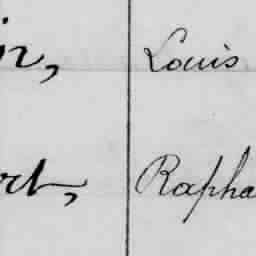 in, Louis
rt, Rapha